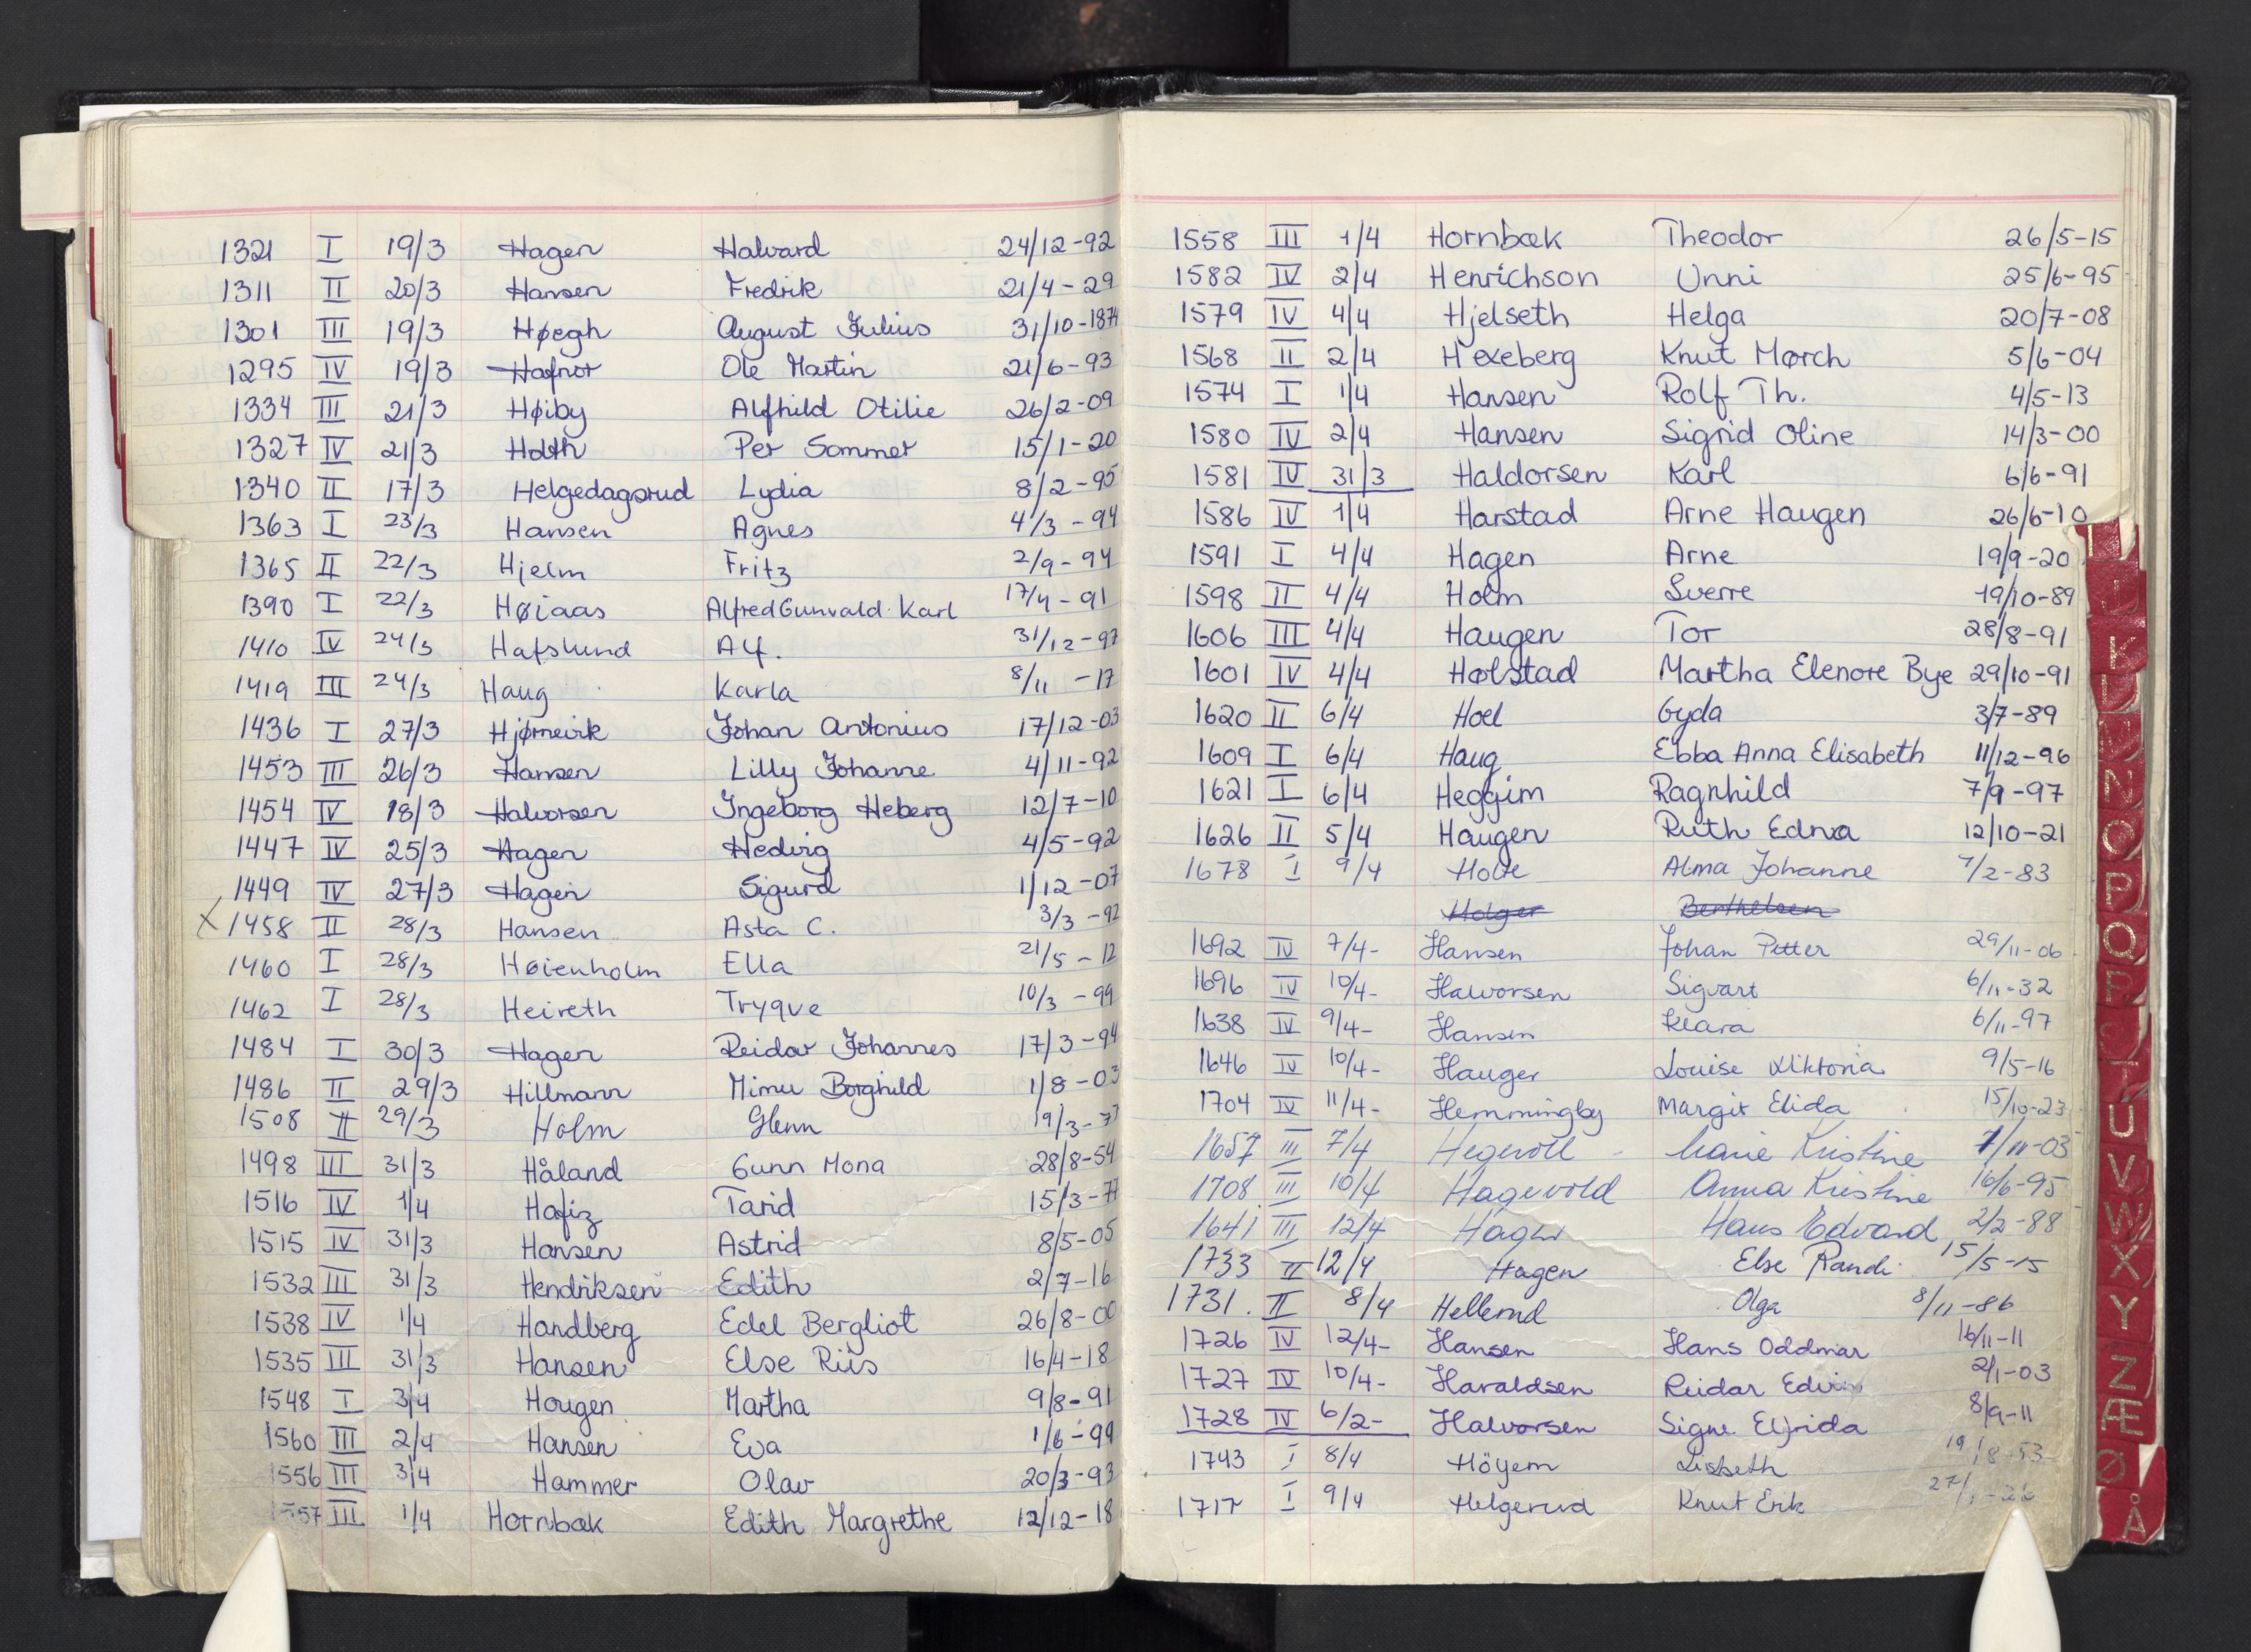 1321 I 19/3 Hagen Halvard 24/12-92
1311 II 20/3 Hansen Fredrik 21/4-29
1301 III 19/3 Høegh August Julius 31/10-1874
1295 IV 19/3 Hafnor Ole Martin 21/6-93
1334 III 21/3 Høiby Alfhild Otilie 26/2-09
1327 IV 21/3 Holth Per Sommer 15/1-20
1340 II 17/3 Helgedagsrud Lydia 8/2-95
1363 I 23/3 Hansen Agnes 4/3-94
1365 II 22/3 Hjelm Fritz 2/9-94
1390 I 22/3 Høiaas Alfred Gunvald Karl 17/4-91
1410 IV 24/3 Hafslund Alf. 31/12-97
1419 III 24/3 Haug Karla 8/11-17
1436 I 27/3 Hjørnevik Johan Antonius 17/12-03
1453 III 26/3 Hansen Lilly Johanne 4/11-92
1454 IV 18/3 Halvorsen Ingeborg Heberg 12/7-10
1447 IV 25/3 Hagen Hedvig 4/5-92
1449 IV 27/3 Hagen Sigurd 1/12-07
X 1458 II 28/3 Hansen Asta C. 3/3-92
1460 I 28/3 Høienholm Ella 21/5-12
1462 I 28/3 Heireth Trygve 10/3-99
1484 I 30/3 Hagen Reidar Johannes 17/3-94
1486 II 29/3 Hillmann Mimu Borghild 1/8-03
1508 II 29/3 Holm Glenn 19/3-
1498 III 31/3 Håland Gunn Mona 28/8-54
1516 IV 1/4 Hafiz Tarid 15/3-77
1515 IV 31/3 Hansen Astrid 8/5-05
1532 III 31/3 Hendriksen Edith 2/7-16
1538 IV 1/4 Handberg Edel Bergliot 26/8-00
1535 III 31/3 Hansen Else Riis 16/4-18
1548 I 3/4 Hougen Martha 9/8-91
1560 III 2/4 Hansen Eva 1/6-99
1556 III 3/4 Hammer Olav 20/3-93
1557 III 1/4 Hornbæk Edith Margrethe 12/12-18
1558 III 1/4 Hornbæk Theodor 26/5-15
1582 IV 2/4 Henrichson Unni 25/6-95
1579 IV 4/4 Hjelseth Helga 20/7-08
1568 II 2/4 Hexeberg Knut Mørch 5/6-04
1574 I 1/4 Hansen Rolf Th. 4/5-13
1580 IV 2/4 Hansen Sigrid Oline 14/3-00
1581 IV 31/3 Haldorsen Karl 6/6-91
1586 IV 1/4 Harstad Arne Haugen 26/6-10
1591 I 4/4 Hagen Arne 19/9-20
1598 II 4/4 Holm Sverre 19/10-89
1606 III 4/4 Haugen Tor 28/8-91
1601 IV 4/4 Holstad Martha Elenore Bye 29/10-91
1620 II 6/4 Hoel Gyda 3/7-89
1609 I 6/4 Haug Ebba Anna Elisabeth 11/12-96
1621 I 6/4 Heggim Ragnhild 7/9-97
1626 II 5/4 Haugen Ruth Edna 12/10-21
1678 I 9/4 Holte Alma Johanne 7/2-83
Holger Berthelsen
1692 IV 7/4- Hansen Johan Petter 29/11-06
1696 IV 10/4- Halvorsen Sigvart 6/11-32
1638 IV 9/4- Hansen Klara 6/11-97
1646 IV 10/4- Hauger Louise Viktoria 9/5-16
1704 IV 11/4- Hemmingby Margit Elida 15/10-23
1657 III 7/4 Hegevoll Marie Kristine 7/11-03
1708 III 10/4 Hagevold Anna Kristine 16/6-95
1641 III 12/4 Hagen Hans Edvard 2/2-88
1733 II 12/4 Hagen Else Randi 15/5-15
1731. II 8/4 Hellerud Olga 8/11-86
1726 IV 12/4- Hansen Hans Oddmar 16/11-11
1727 IV 10/4- Haraldsen Reidar Edvin 2/1-03
1728 IV 6/2- Halvorsen Signe Elfrida 8/9-11
1743 I 8/4 Höyem Lisbeth 19/8-53
1717 I 9/4 Helgerud Knut Erik
I
J
K
L
M
N
O
P
Q
R
S
T
U
V
W
X
Y
Z
Æ
Ø
Å